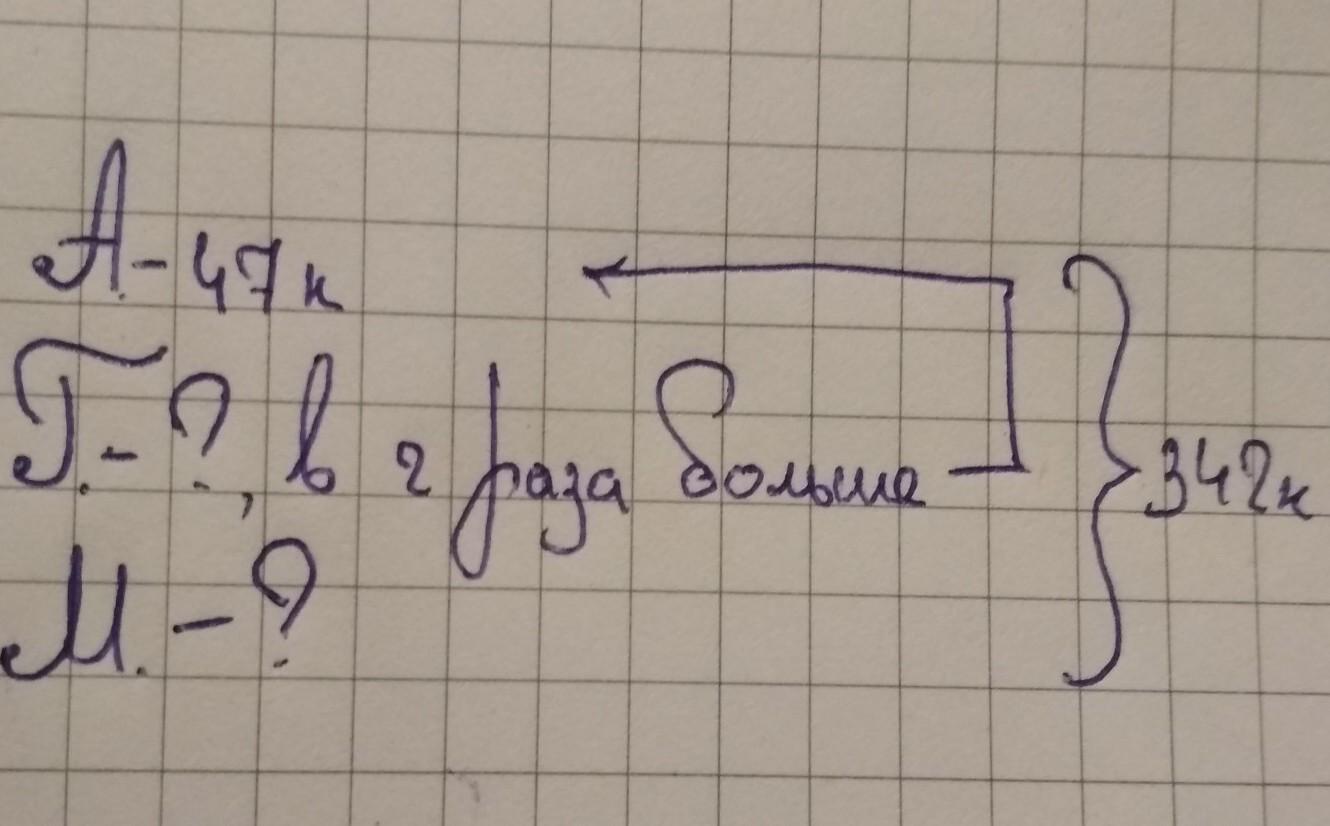 А. - 47 к
Г. - ?, в 2 раза больше
342к
М. - ?